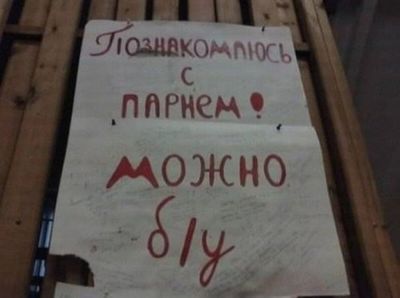 Познакомлюсь
с
парнем!
можно
б/у